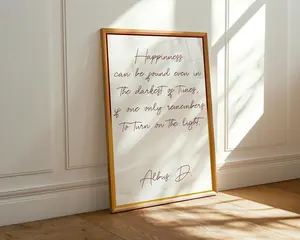 Happinness
can be found even in
the darkest of times,
if one only remembers
to turn on the light.
Albus D.